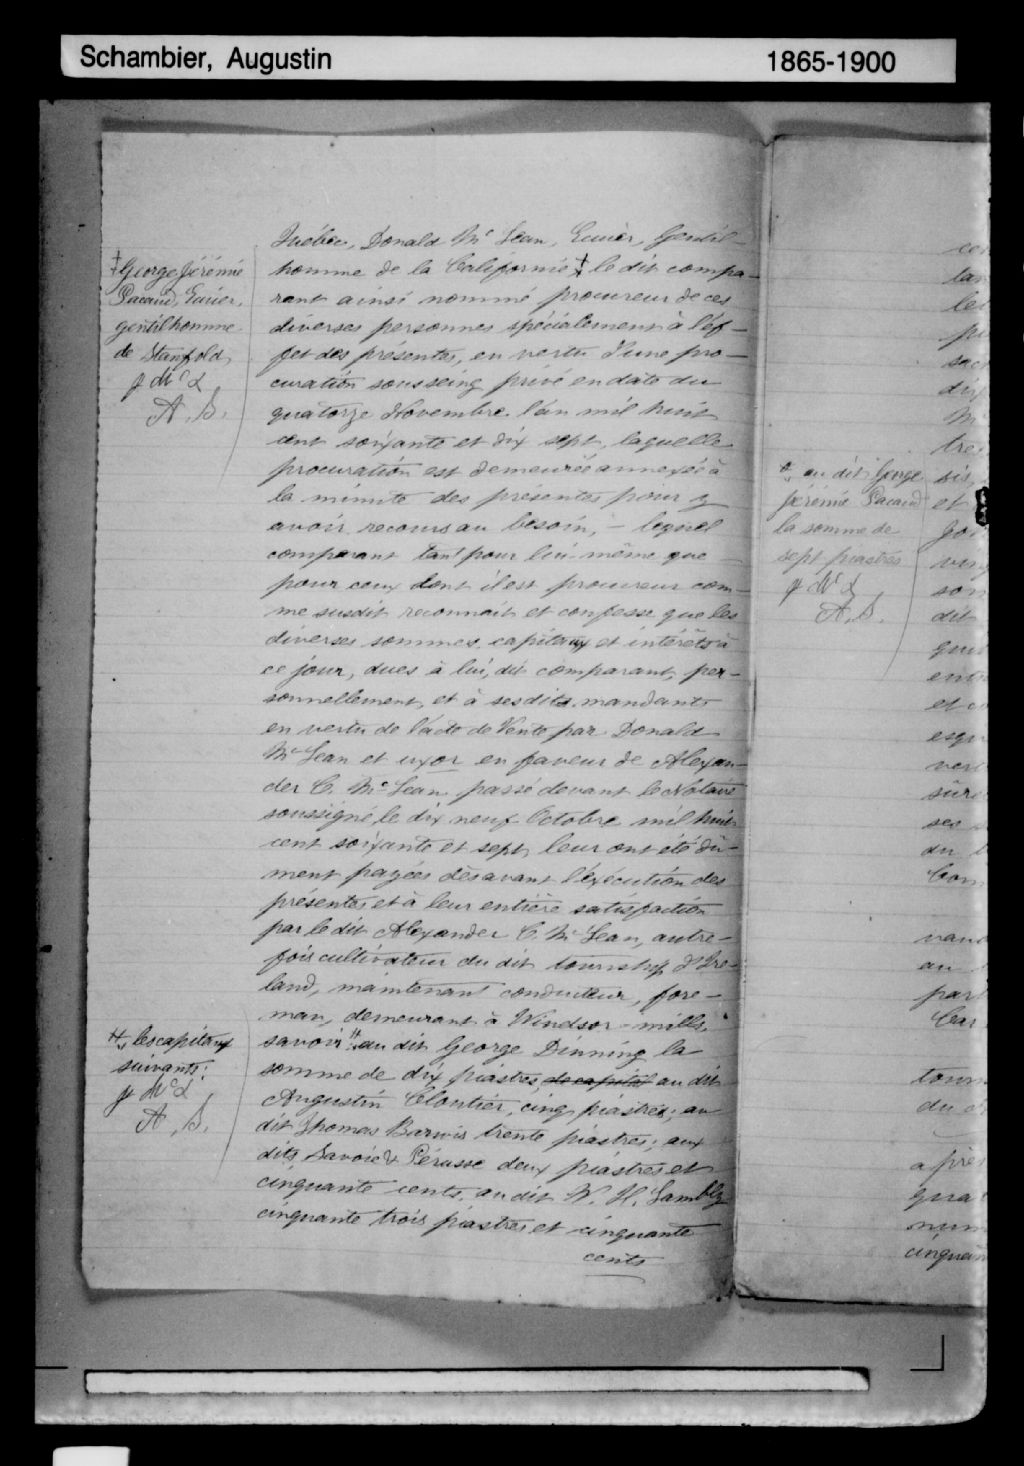 Schambier, Augustin
1865-1900
Québec, Donald Mc Lean, Ecuier, Gentil-
homme de la Californie ‡ le dit compa-
rant ainsi nommé procureur de ces
diverses personnes spécialement à l'éf-
fet des présentes, en vertu d'une pro-
curation sousseing privé en date du
quatorze Novembre l'an mil huit
cent soixante et dix sept, laquelle
procuration est demeurée annexée à
la minute des présentes pour y
avoir recours au besoin, - lequel
comparant tant pour lui-même que
pour ceux dont il est procureur com-
me susdit reconnait et confesse que les
diverses sommes, capitaux et intérêts à
ce jour, dues à lui, dit comparant, per-
sonnellement, et à sesdits mandants
en vertu de l'acte de Vente par Donald
Mc Lean et uxor en faveur de Alexan-
der C. Mc Lean passé devant le Notaire
soussigné le dix neuf Octobre mil huit
cent soixante et sept, leur ont été dû-
ment payées dès avant l'éxécution des
présentes et à leur entière satisfaction
par le dit Alexander C. Mc Lean, autre-
fois cultivateur du dit township d'Ire-
land, maintenant conducteur, fore-
man, demeurant à Windsor-mills,
savoir # au dit George Dinning la
somme de dix piastres de capital au dit
Augustin Cloutier, cinq piastres; au
dit Thomas Barwis trente piastres; aux
dits Savoie & Pérusse deux piastres et
cinquante cents, au dit W. H. Lambly
cinquante trois piastres et cinquante
cents
‡ George Jérémie
Pacaud, Ecuier,
gentilhomme
de Stanfold,
A. S.
# les capitaux
suivants:
A. S.
au dit George
Jérémie Pacaud
la somme de
sept piastres
A. S.
tan
les
dix
M
tres
six,
et
son
dit
et
ses
du
au
par
tour
du
après
qua
num